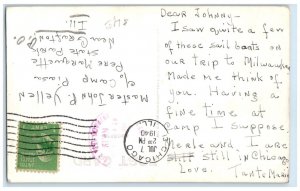 Dear Johnny:
I saw quite a few
of those sail boats on
our trip to Milwaukee
Made me think of
you. Having a
fine time at
camp I suppose.
Merle and I are
still in Chicago
Love. Tante Marie
Master John P. Yellen
c/o Camp Piasa
Pere Marquette
State Park
New Grafton
Ill.
CHICAGO
ILL.
JUL
2 30 PM
1940